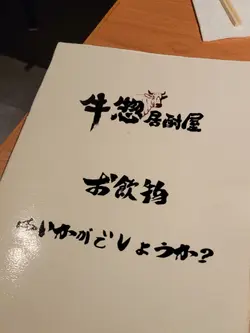 牛惣居酎屋
お飲物
はいかがでしょうか?